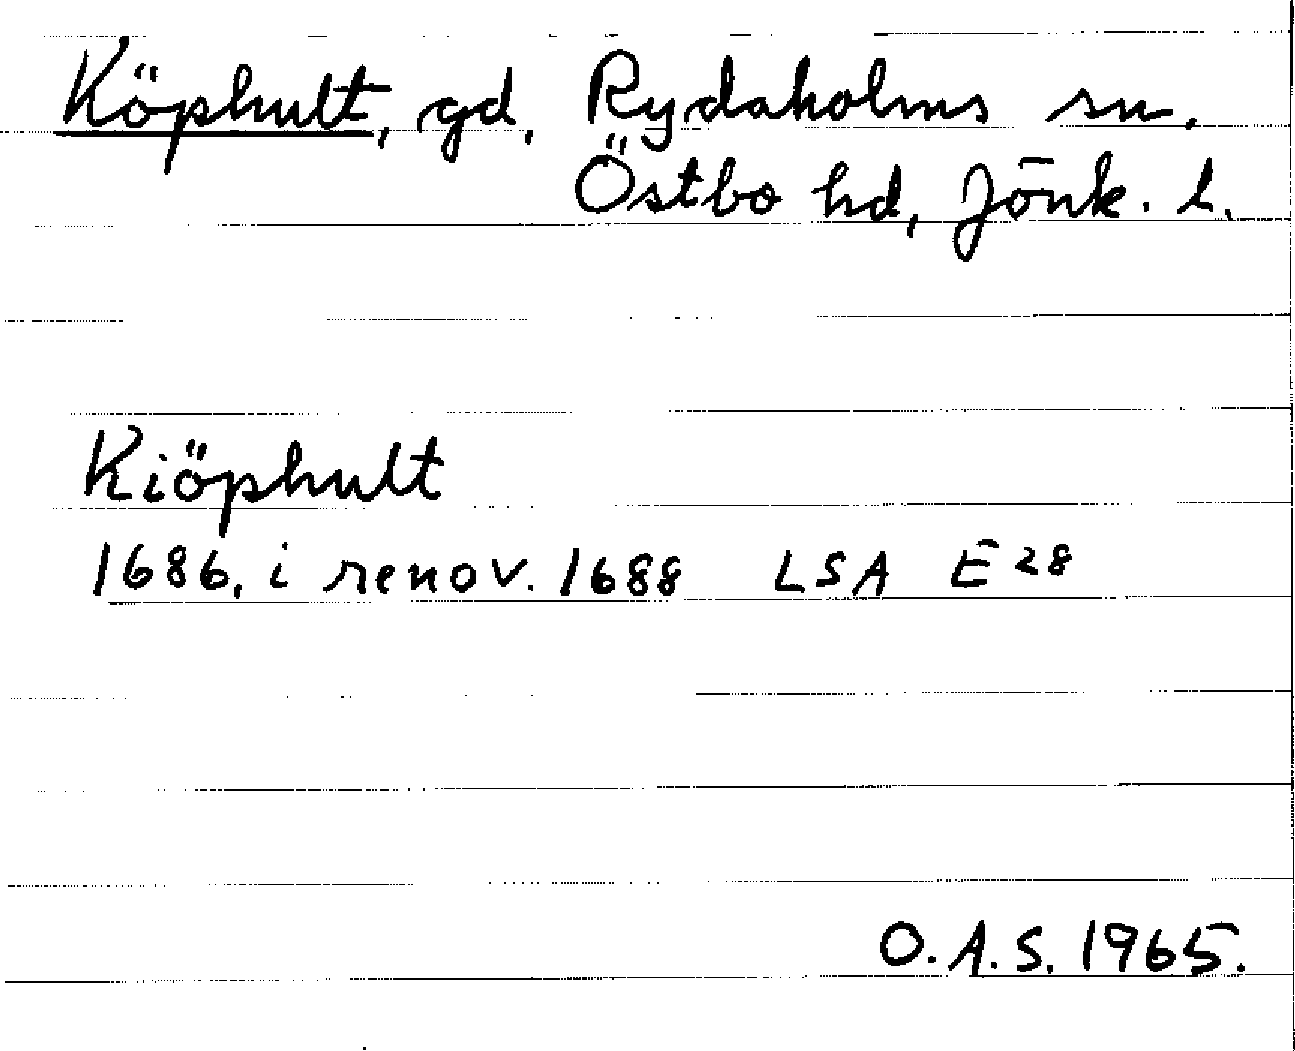 Köphult, gd, Rydaholms sn.
Östbo hd, Jönk. l.
Kiöphult
1686, i renov. 1688 LSA E 28
O.A.S. 1965.